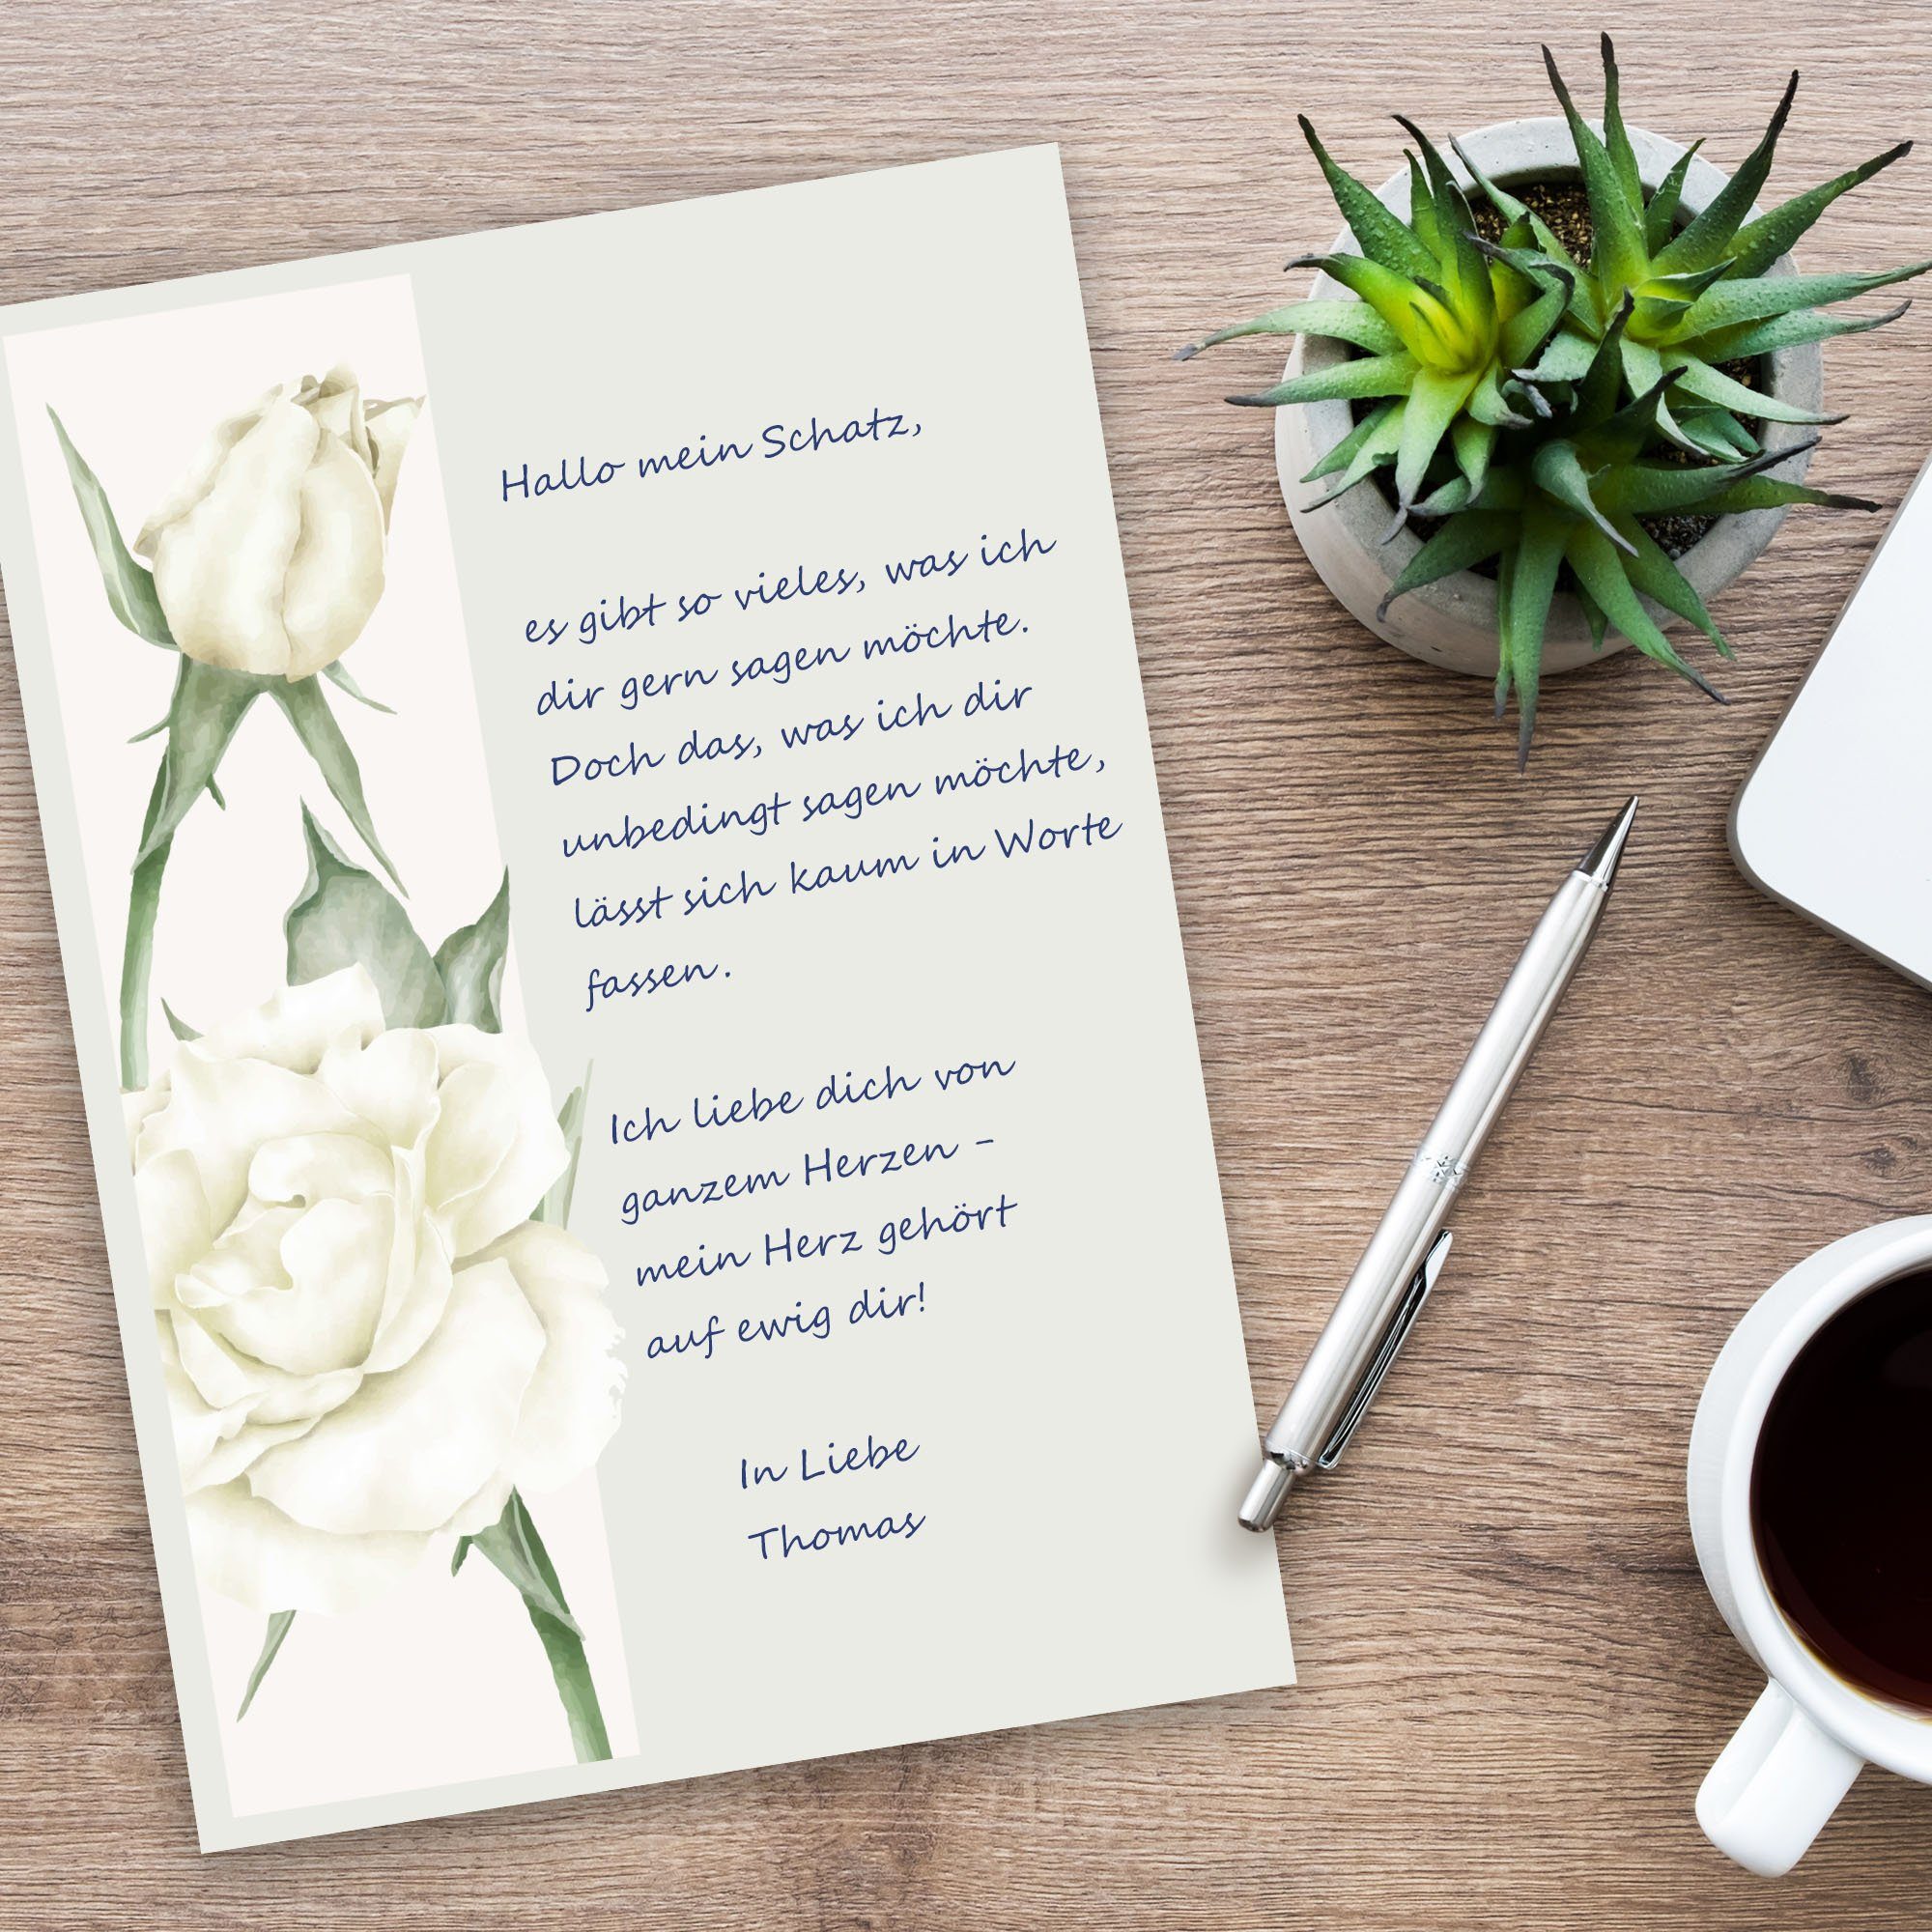 Hallo mein Schatz,
es gibt so vieles, was ich
dir gern sagen möchte.
Doch das, was ich dir
unbedingt sagen möchte,
lässt sich kaum in Worte
fassen.
Ich liebe dich von
ganzem Herzen -
mein Herz gehört
auf ewig dir!
In Liebe
Thomas